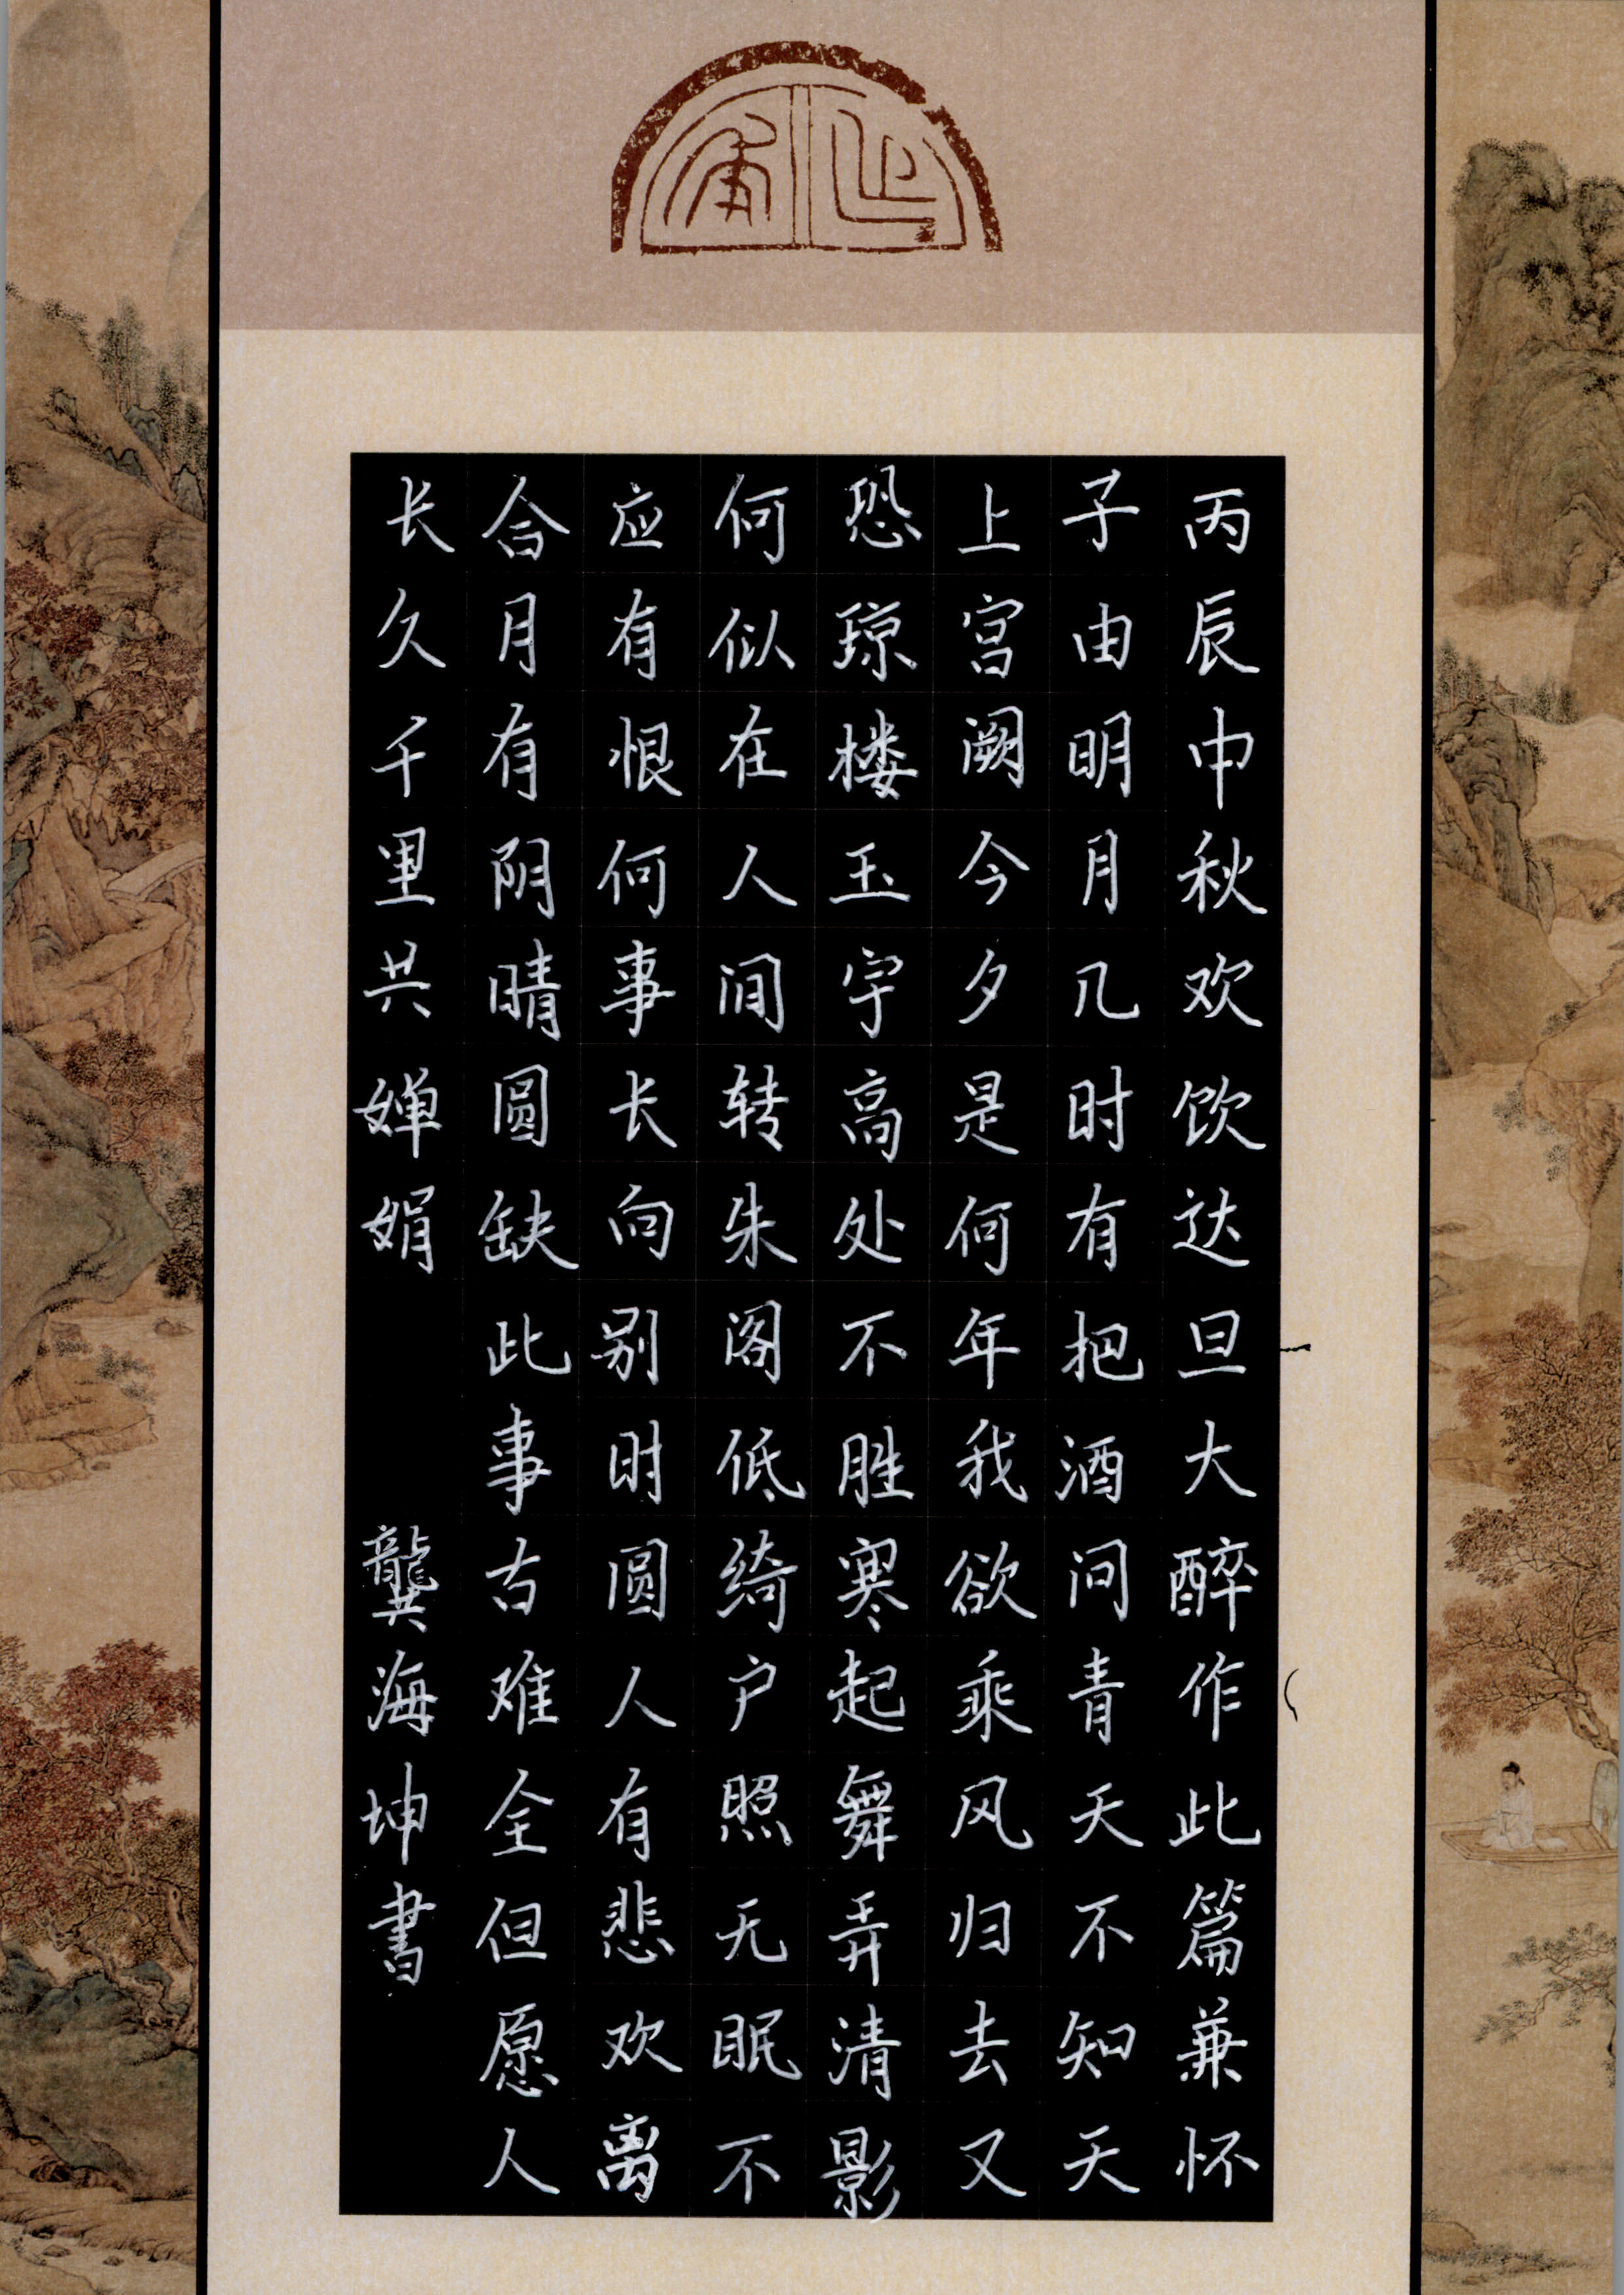 延年
丙辰中秋欢饮达旦大醉作此篇兼怀
子由明月几时有把酒问青天不知天
上宫阙今夕是何年我欲乘风归去又
恐琼楼玉宇高处不胜寒起舞弄清影
何似在人间转朱阁低绮户照无眠不
应有恨何事长向别时圆人有悲欢离
合月有阴晴圆缺此事古难全但愿人
长久千里共婵娟
龔海坤書